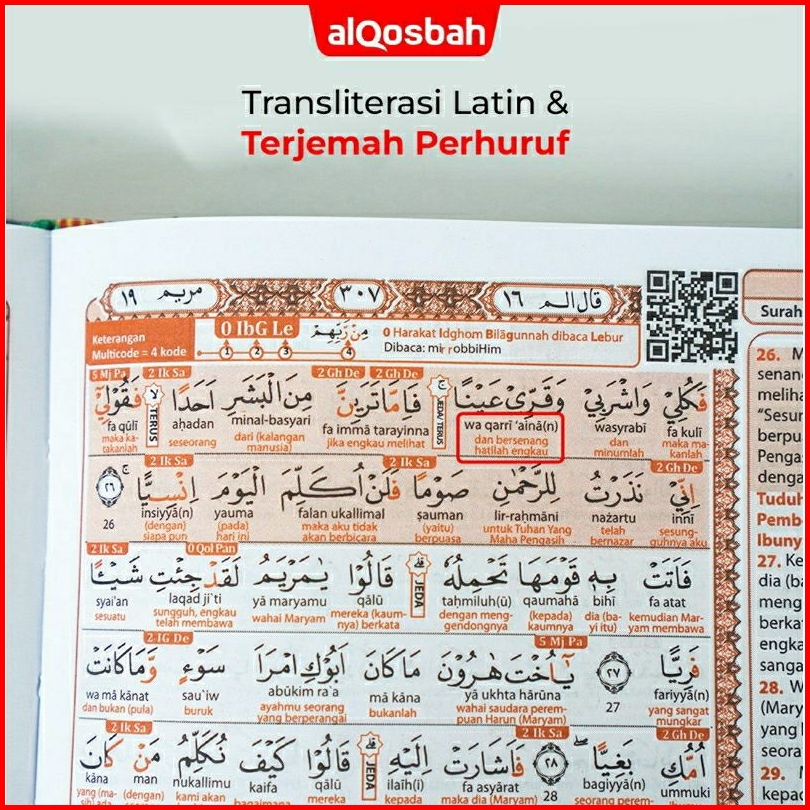 alQosbah
Transliterasi Latin &
Terjemah Perhuruf
قال الم ١٦
٣٠٧
مريم ١٩
Keterangan
Multicode = 4 kode
0 IbG Le
1 2 3 4
مِنْ رَّبِّهِمْ
0 Harakat Idghom Bilāgunnah dibaca Lebur
Dibaca: mirrobbiHim
2 Gh De 2 Gh De 2 Ik Sa 5 Mj Pa
فَكُلِيْ وَاشْرَبِيْ وَقَرِّيْ عَيْنًا ۚ فَاِمَّا تَرَيِنَّ مِنَ الْبَشَرِ اَحَدًا ۙ فَقُوْلِيْٓ
JEDA/TERUS
TERUS
fa kulī wasyrabī wa qarrī 'ainā(n) fa immā tarayinna minal-basyari aḥadan fa qūlī
maka ma- dan dan bersenang jika engkau melihat dari (kalangan seseorang maka ka-
kanlah minumlah hatilah engkau manusia) takanlah
2 Gh De 2 Ik Sa 2 Ik Sa
اِنِّيْ نَذَرْتُ لِلرَّحْمٰنِ صَوْمًا فَلَنْ اُكَلِّمَ الْيَوْمَ اِنْسِيًّا ۚ ٢٦
innī nażartu lir-raḥmāni ṣauman falan ukallimal yauma insiyyā(n) 26
sesung- telah untuk Tuhan Yang (yaitu) maka aku tidak (pada) (dengan)
guhnya aku bernazar Maha Pengasih berpuasa akan berbicara hari ini siapa pun
0 Qol Pan 2 Ik Sa
فَاَتَتْ بِهٖ قَوْمَهَا تَحْمِلُهٗ ۗ قَالُوْا يٰمَرْيَمُ لَقَدْ جِئْتِ شَيْـًٔا
JEDA
fa atat bihī qaumahā taḥmiluh(ū) qālū yā maryamu laqad ji`ti syai'an
kemudian Mar- dia (ba- (kepada) dengan meng- mereka (kaum- wahai Maryam sungguh, engkau sesuatu
yam membawa yi itu) kaumnya gendongnya nya) berkata telah membawa
5 Mj Pa 2 IG De
فَرِيًّا ٢٧ يٰٓاُخْتَ هٰرُوْنَ مَا كَانَ اَبُوْكِ امْرَاَ سَوْءٍ وَّمَا كَانَتْ
fariyyā(n) 27 yā ukhta hārūna mā kāna abūkim ra`a sau`iw wa mā kānat
yang sangat wahai saudara perem- bukanlah ayahmu seorang buruk dan bukan (pula)
mungkar puan Harun (Maryam) yang berperangai
2 Gh De 2 Ik Sa
اُمُّكِ بَغِيًّا ۖ ٢٨ فَاَشَارَتْ اِلَيْهِ ۗ قَالُوْا كَيْفَ نُكَلِّمُ مَنْ كَانَ
JEDA
ummuki bagiyyā(n) 28 fa asyārat ilaīh(i) qālū kaifa nukallimu man kāna
ibumu seorang perem- maka dia (Maryam) kepada mereka bagaimana kami akan (dengan) yang (ma-
Surah
26.
senan
meliha
"Sesur
berpu
Penga
denga
Tuduh
Pemb
Ibuny
27. Ke
dia (ba
meng
berka
engka
sanga
28. W
(Mary
yang
seora
29. M
kepac